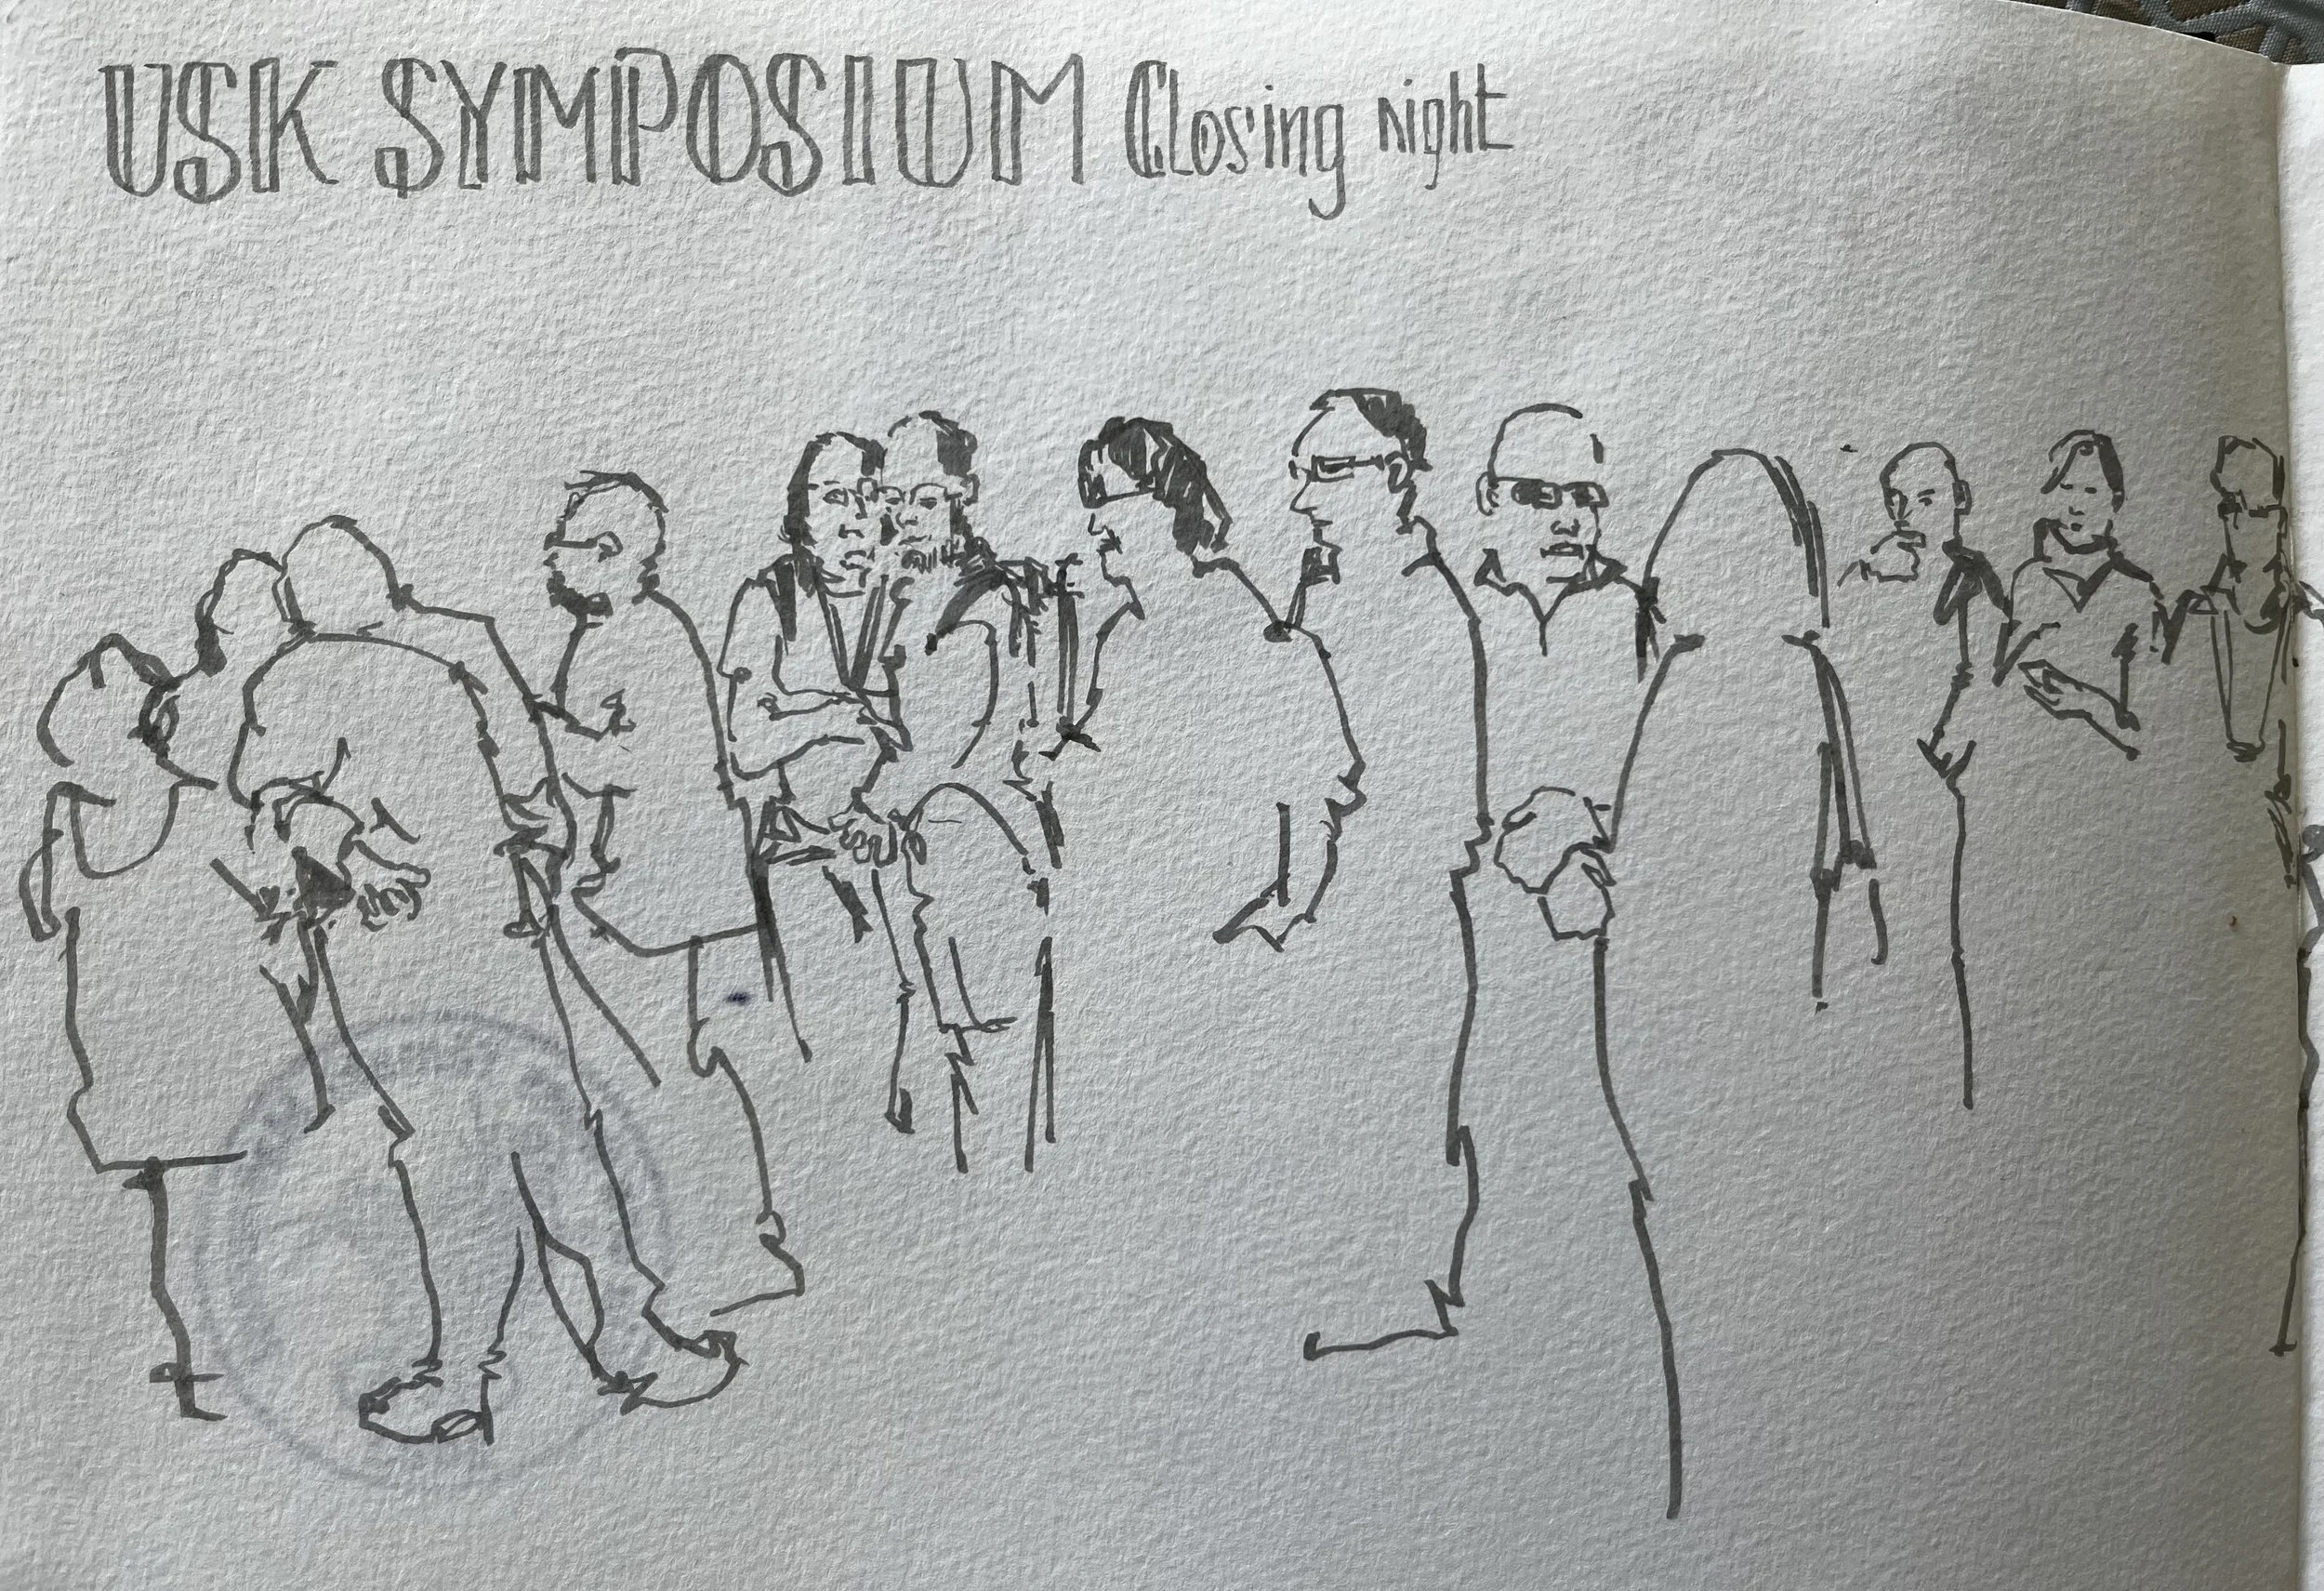 USK SYMPOSIUM Closing night